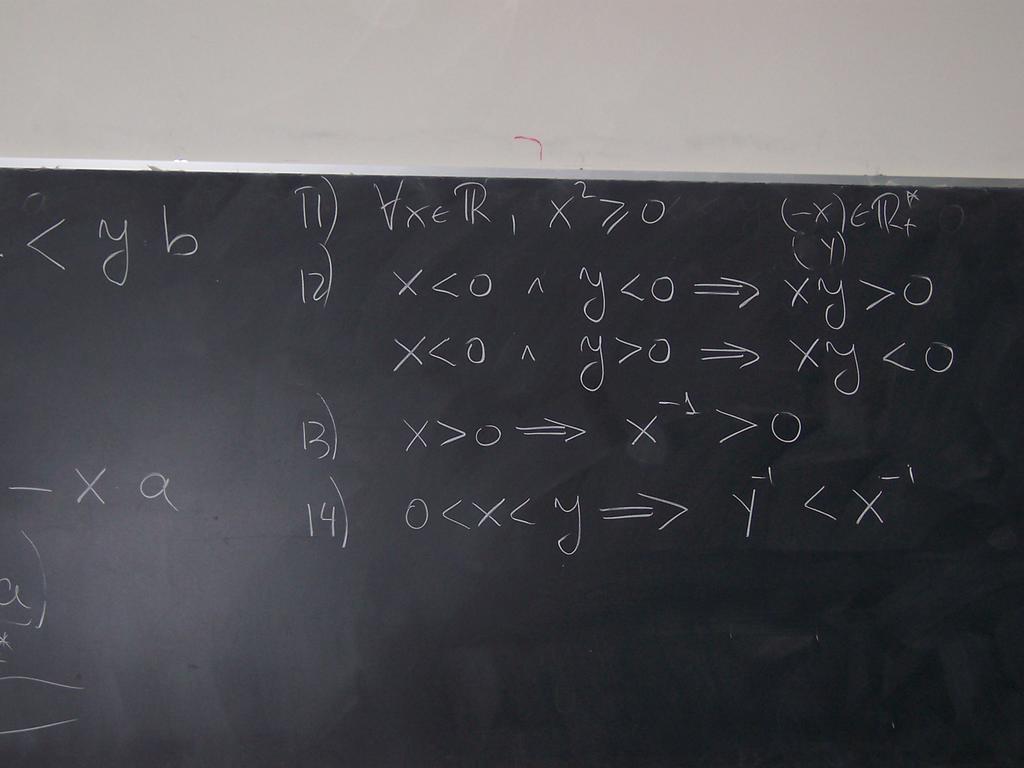 < y b
- x a
a)
*
11) ∀x∈ℝ, x² ⩾ 0 (-x)∈ℝ₊*
(y)
12) x<0 ∧ y<0 ⟹ xy>0
x<0 ∧ y>0 ⟹ xy<0
13) x>0 ⟹ x⁻¹ >0
14) 0<x<y ⟹ y⁻¹ < x⁻¹